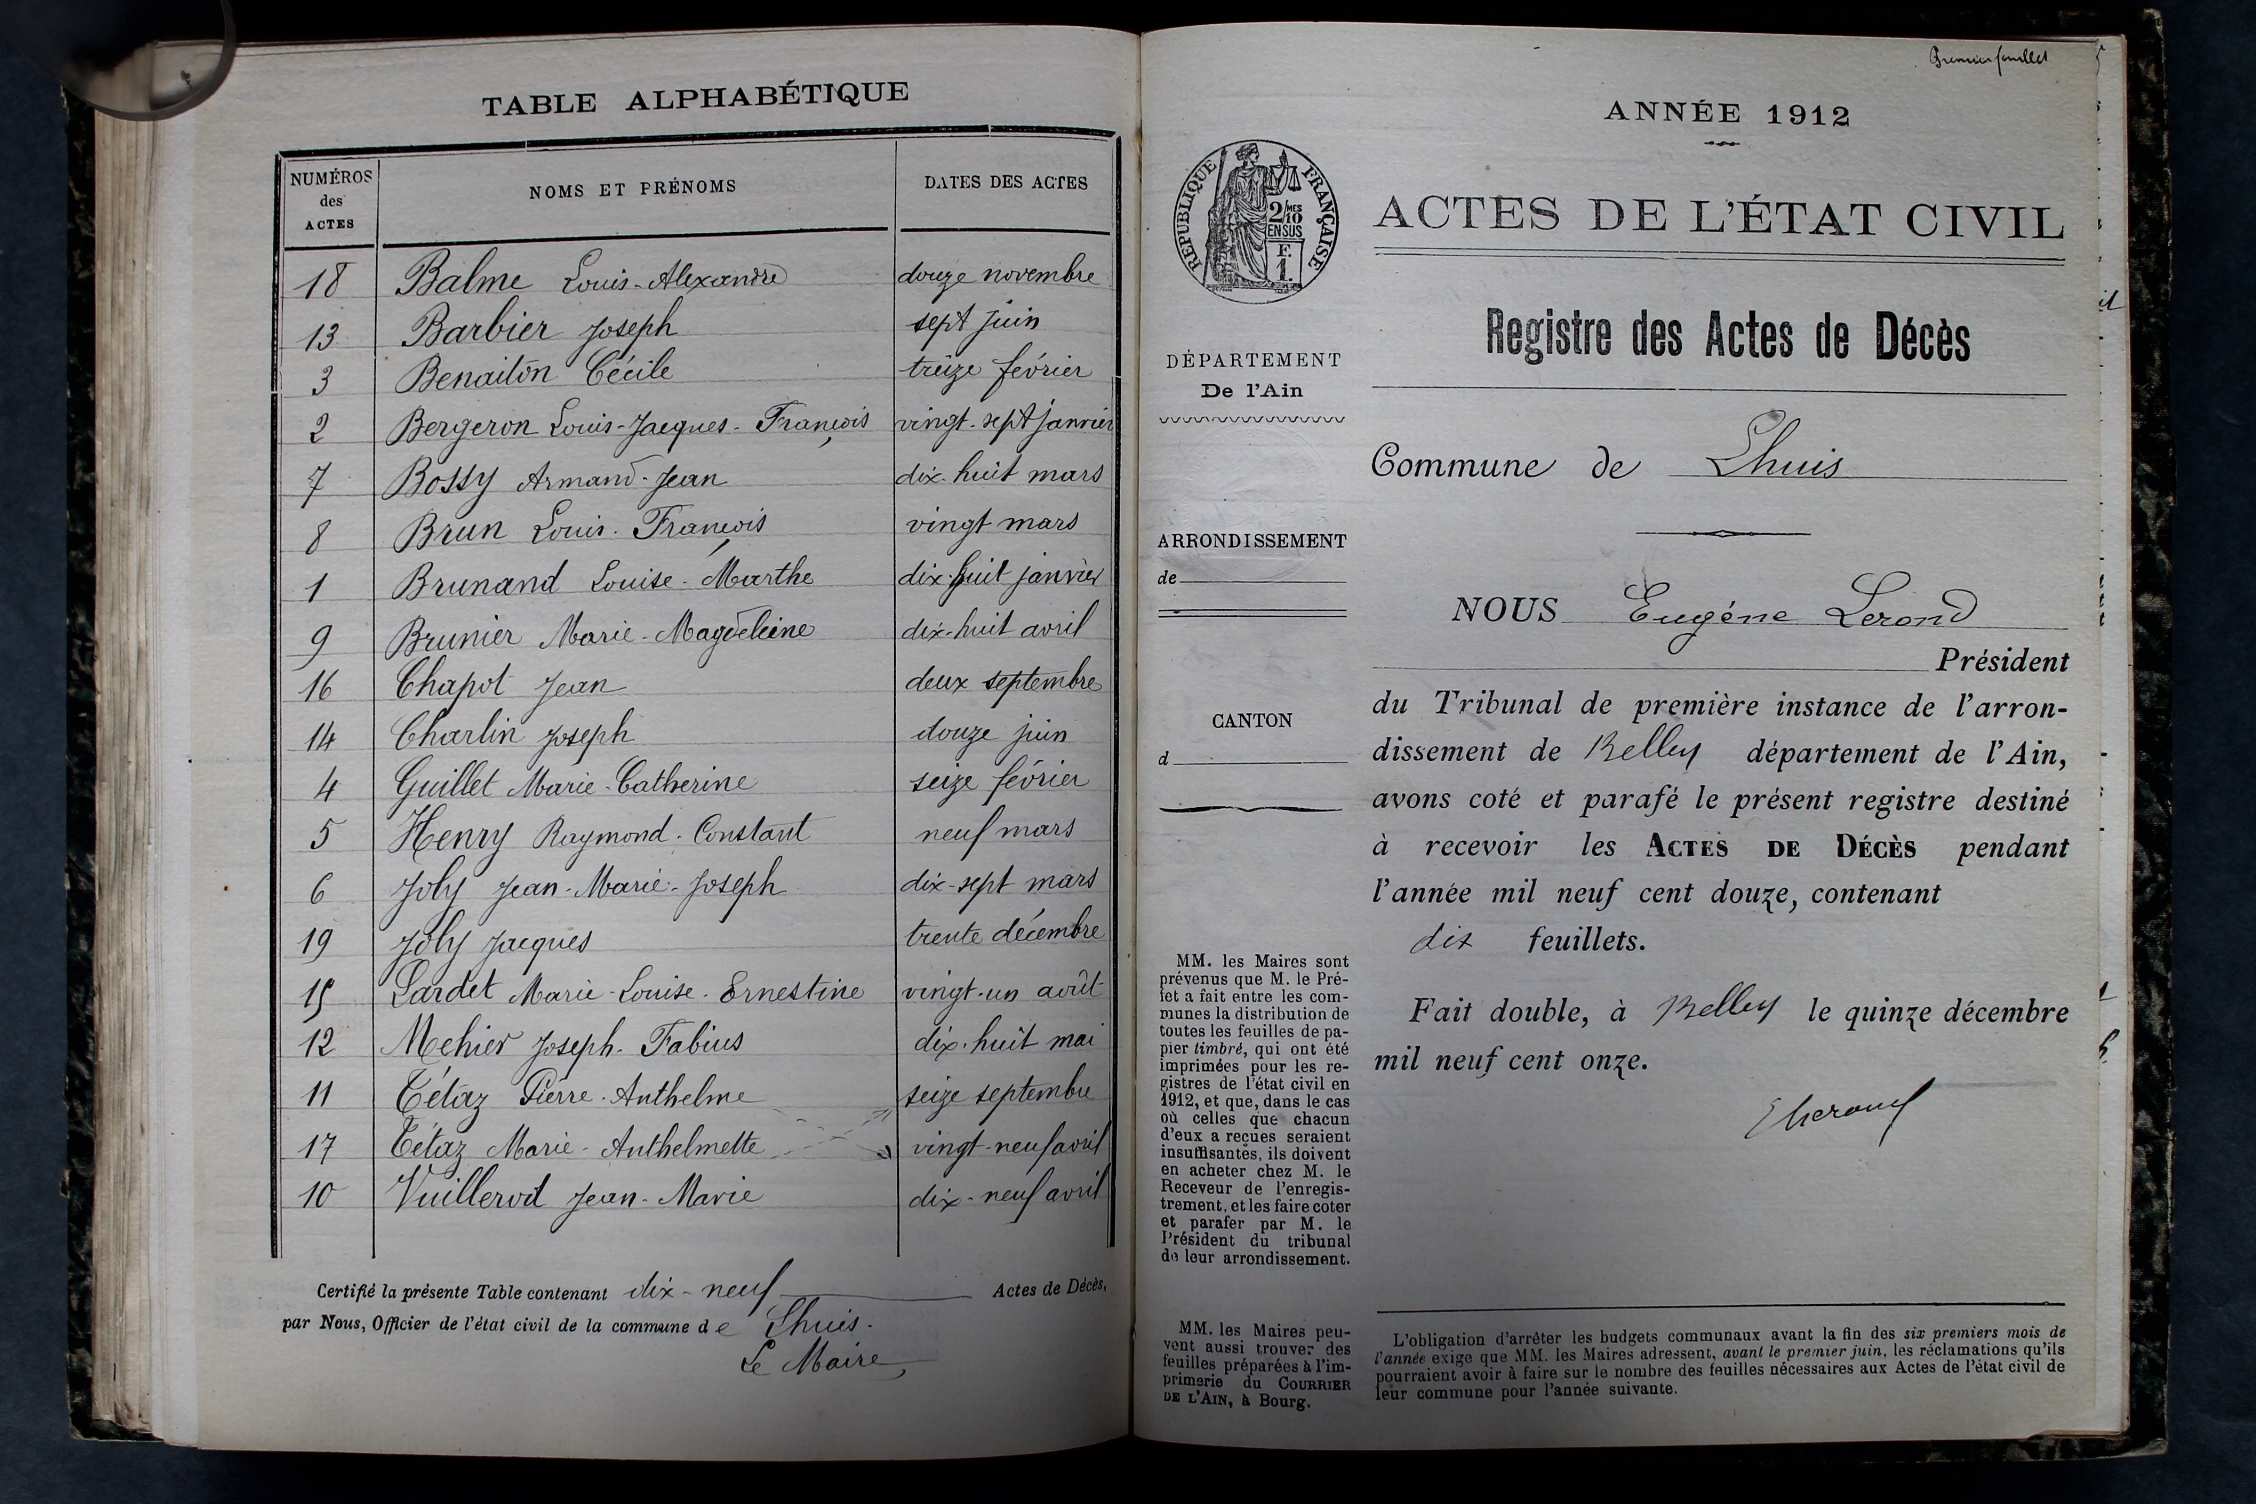 TABLE ALPHABÉTIQUE
NUMÉROS des ACTES NOMS ET PRÉNOMS DATES DES ACTES
18 Balme Louis-Alexandre douze novembre
13 Barbier Joseph sept juin
3 Benaiton Cécile treize février
2 Bergeron Louis-Jacques-François vingt-sept janvier
7 Bossy Armand-Jean dix-huit mars
8 Brun Louis-François vingt mars
1 Brunand Louise-Marthe dix-huit janvier
9 Brunier Marie-Magdeleine dix-huit avril
16 Chapot Jean deux septembre
14 Charlin Joseph douze juin
4 Guillet Marie-Catherine seize février
5 Henry Raymond-Constant neuf mars
6 Joly Jean-Marie-Joseph dix-sept mars
19 Joly Jacques trente décembre
15 Lardet Marie-Louise-Ernestine vingt-un août
12 Mehier Joseph-Fabius dix-huit mai
11 Tétaz Pierre-Anthelme seize septembre
17 Tétaz Marie-Anthelmette vingt-neuf avril
10 Vuillerod Jean-Marie dix-neuf avril
Certifié la présente Table contenant dix-neuf Actes de Décès,
par Nous, Officier de l'état civil de la commune de Lhuis.
Le Maire,
Premier feuillet
ANNÉE 1912
RÉPUBLIQUE FRANÇAISE
2/10 MES
EN SUS
F.
1.
ACTES DE L'ÉTAT CIVIL
Registre des Actes de Décès
DÉPARTEMENT
De l'Ain
Commune de Lhuis
ARRONDISSEMENT
de
CANTON
d
NOUS Eugène Lerond
Président
du Tribunal de première instance de l'arron-
dissement de Belley département de l'Ain,
avons coté et parafé le présent registre destiné
à recevoir les ACTES DE DÉCÈS pendant
l'année mil neuf cent douze, contenant
dix feuillets.
Fait double, à Belley le quinze décembre
mil neuf cent onze.
MM. les Maires sont
prévenus que M. le Pré-
fet a fait entre les com-
munes la distribution de
toutes les feuilles de pa-
pier timbré, qui ont été
imprimées pour les re-
gistres de l'état civil en
1912, et que, dans le cas
où celles que chacun
d'eux a reçues seraient
insuffisantes, ils doivent
en acheter chez M. le
Receveur de l'enregis-
trement, et les faire coter
et parafer par M. le
Président du tribunal
de leur arrondissement.
MM. les Maires peu-
vent aussi trouver des
feuilles préparées à l'im-
primerie du COURRIER
DE L'AIN, à Bourg.
L'obligation d'arrêter les budgets communaux avant la fin des six premiers mois de
l'année exige que MM. les Maires adressent, avant le premier juin, les réclamations qu'ils
pourraient avoir à faire sur le nombre des feuilles nécessaires aux Actes de l'état civil de
leur commune pour l'année suivante.